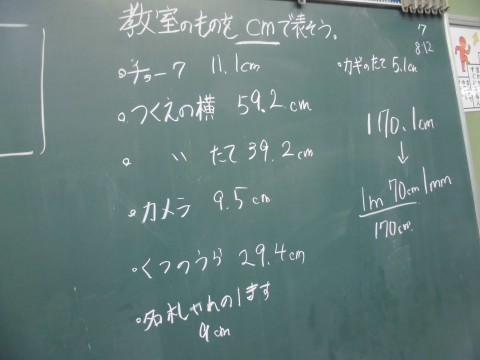 教室のものを cmで表そう。
・チョーク 11.1cm
・つくえの横 59.2cm
・ 〃 たて 39.2cm
・カメラ 9.5cm
・くつのうら 29.4cm
・名札やれの1ます
9cm
7
8:12
・カギのたて 5.1cm
170.1cm
↓
1m 70cm 1mm
170cm